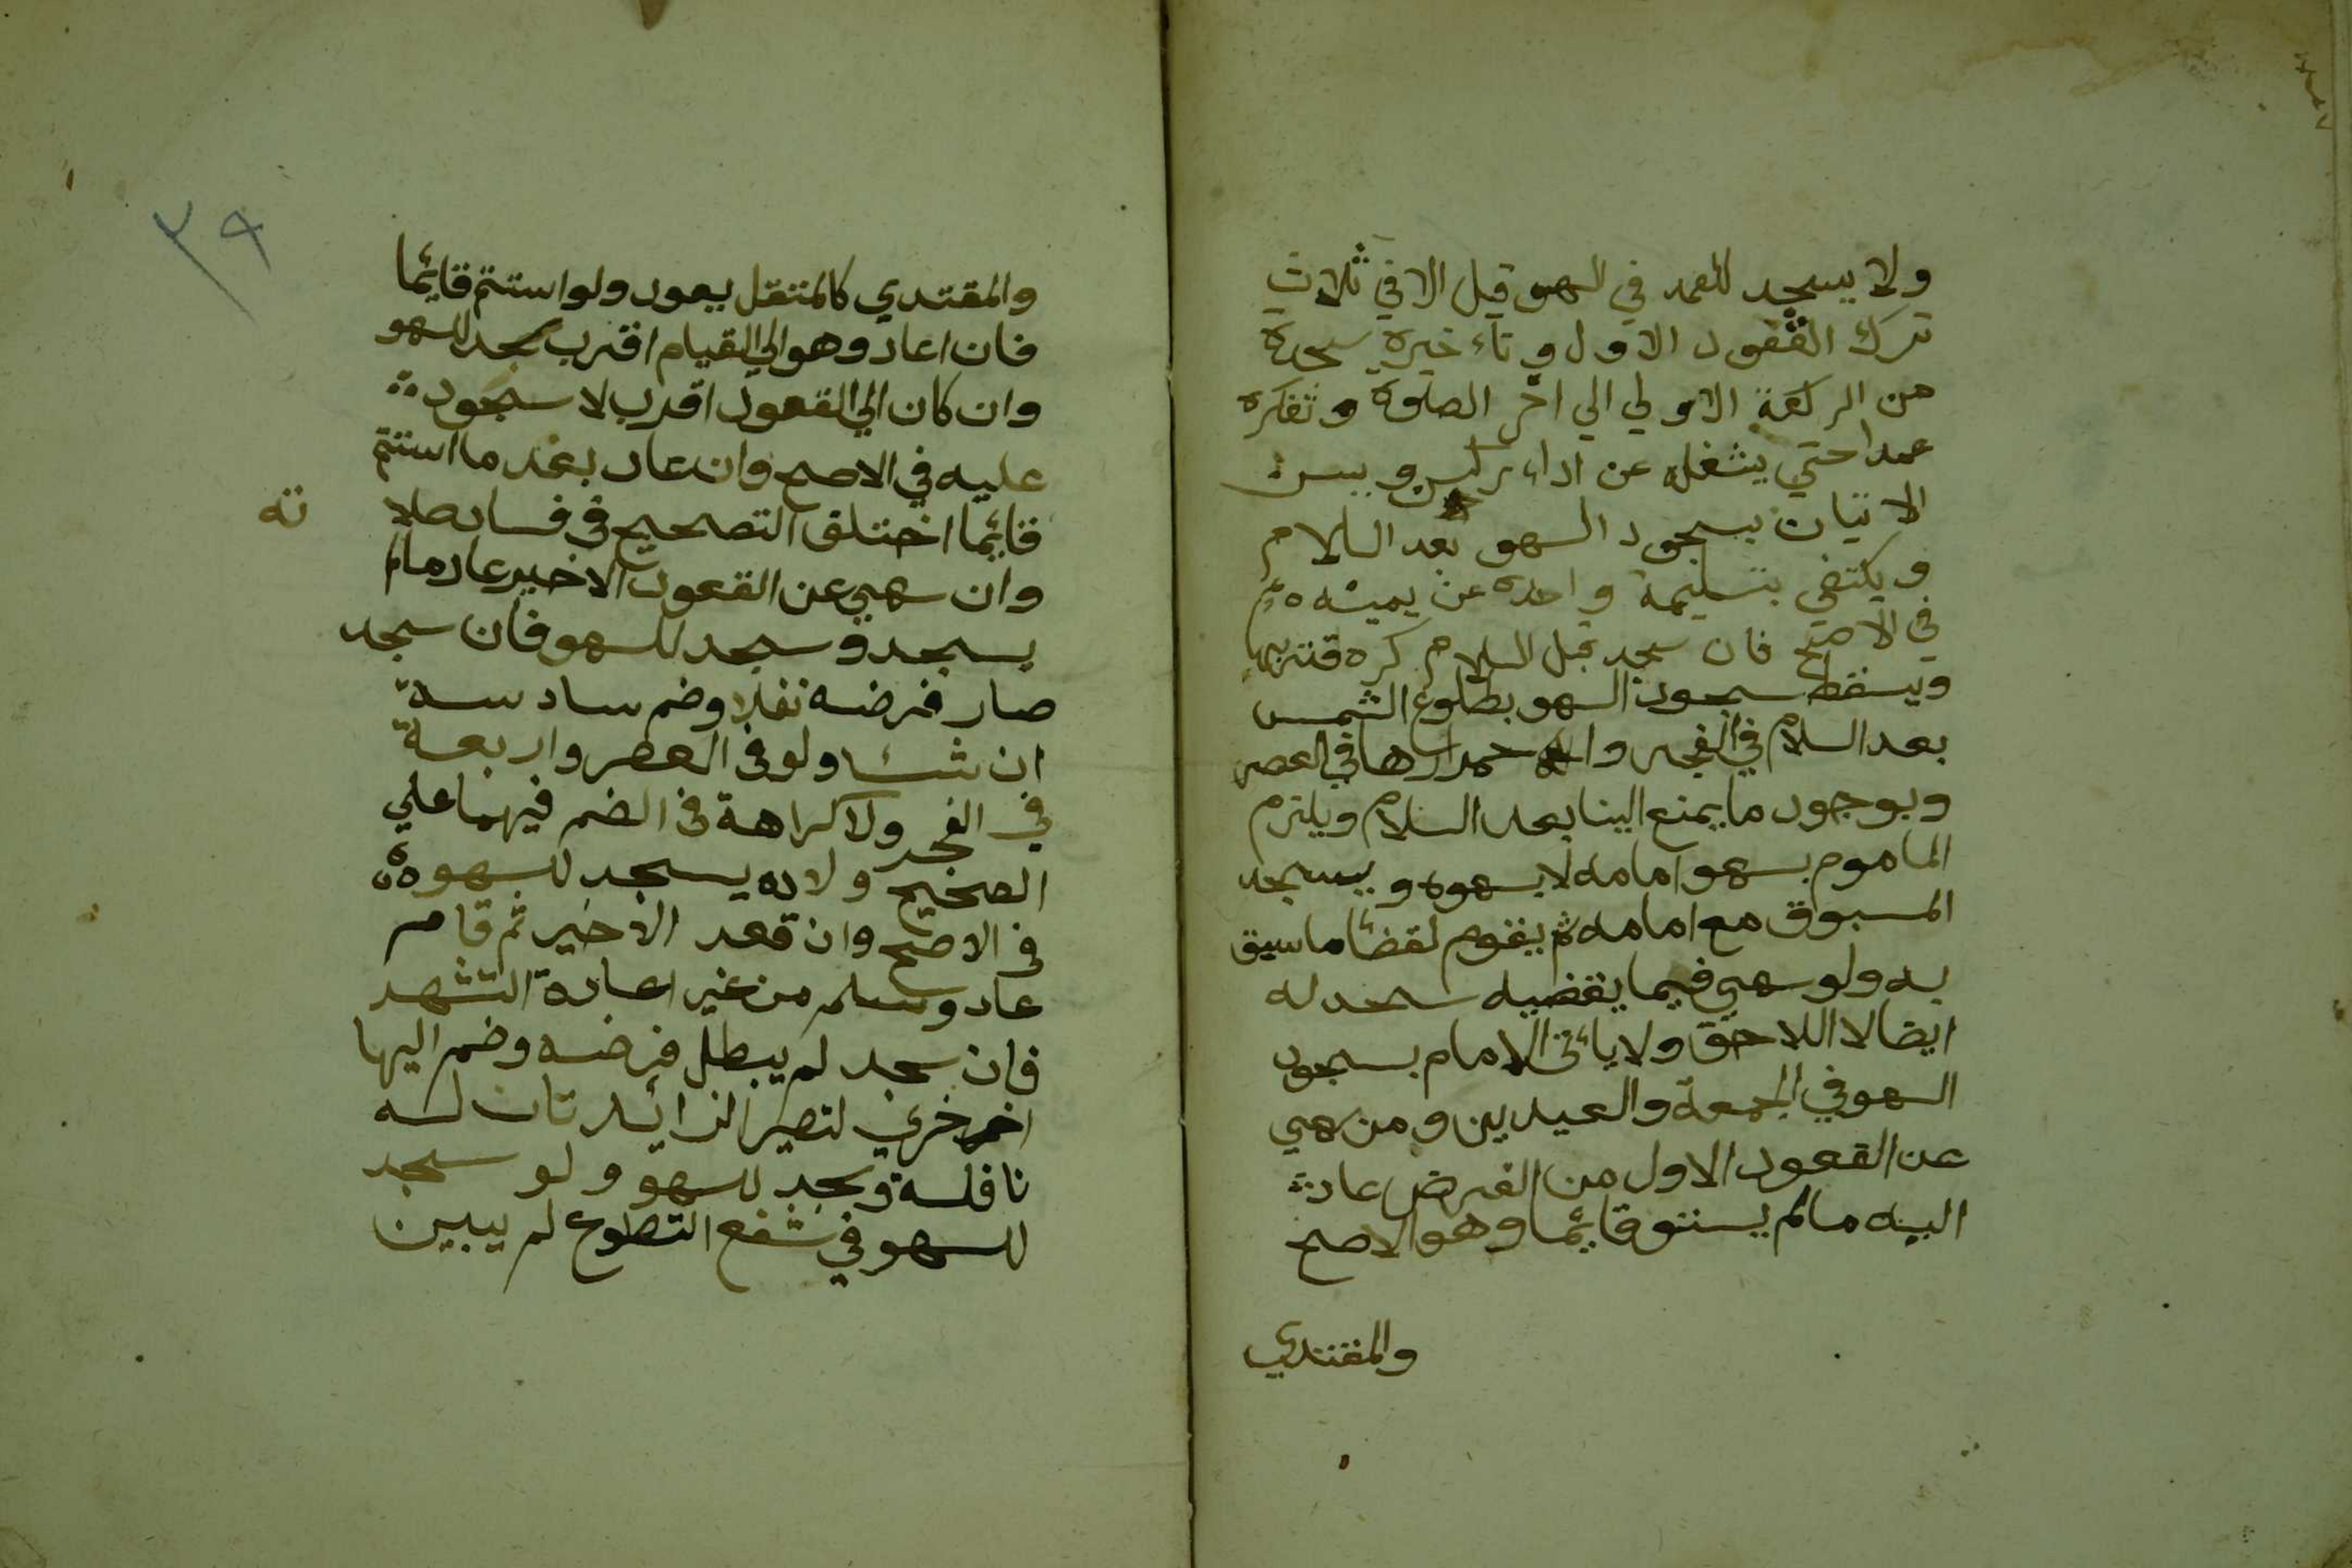 ولا يسجد للعمد في السهو قيل الا في ثلاث
ترك القعود الاول وتاءخيره سجدة
من الركعة الاولي الي اخر الصلوة وتفكره
عمدا حتي يشغله عن اداء ركن ويسن
الاتيان بسجود السهو بعد السلام
ويكتفي بتسليمة واحدة عن يمينه
في الاصح فان سجد قبل السلام كره تنزيها
ويسقط سجود السهو بطلوع الشمس
بعد السلام في الفجر واحمرارها في العصر
وبوجود ما يمنع البنا بعد السلام ويلزم
الماموم بسهو امامه لا بسهوه ويسجد
المسبوق مع امامه ثم يقوم لقضائ ما سبق
به ولو سهي فيما يقضيه سجد له
ايضا لا اللاحق ولا يائتى الامام بسجود
السهو في الجمعة والعيدين ومن سهي
عن القعود الاول من الفرض عاد
اليه مالم يستو قائما وهو الاصح
والمقتدي
٣٩
والمقتدي كالمتنفل يعود ولو استتم قائما
فان اعاد وهو الي القيام اقرب سجد للسهو
وان كان الي القعود اقرب لا سجود
عليه في الاصح وان عاد بعد ما استتم
قائما اختلف التصحيح في فساد صلا ته
وان سهي عن القعود الاخير عاد مالم
يسجد وسجد للسهو فان سجد
صار فرضه نفلا وضم سادسة
ان شئا ولو في العصر واربعة
في الفجر ولا كراهة في الضم فيهما علي
الصحيح ولا يسجد للسهو
في الاصح وان قعد الاخير ثم قام
عاد وسلم من غير اعادة التشهد
فان سجد لم يبطل فرضه وضم اليها
اخري لتصير الزائدتان له
نافلة وسجد للسهو ولو سجد
للسهو في شفع التطوع لم يبين